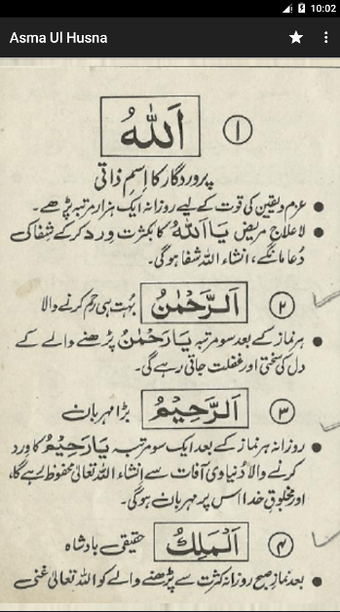 10:02
Asma Ul Husna
۱ اَللّٰهُ
پروردگار کا اِسمِ ذاتی
● عزم و یقین کی قوت کے لیے روزانہ ایک ہزار مرتبہ پڑھے۔
● لاعلاج مریض یَا اَللّٰهُ کا بکثرت ورد کرکے شفا کی
دُعا مانگے، انشاء اللہ شفا ہوگی۔
۲ اَلرَّحْمٰنُ بہُت ہی رحم کرنے والا
● ہر نماز کے بعد سو مرتبہ یَا رَحْمٰنُ پڑھنے والے کے
دل کی سختی اور غفلت جاتی رہے گی۔
۳ اَلرَّحِیْمُ بڑا مہربان
● روزانہ ہر نماز کے بعد ایک سو مرتبہ یَا رَحِیْمُ کا ورد
کرنے والا دُنیاوی آفات سے انشاء اللہ تعالیٰ محفوظ رہے گا،
اور مخلوقِ خدا اس پر مہربان ہوگی۔
۴ اَلْمَلِكُ حقیقی بادشاہ
● بعد نمازِ صبح روزانہ کثرت سے پڑھنے والے کو اللہ تعالیٰ غنی